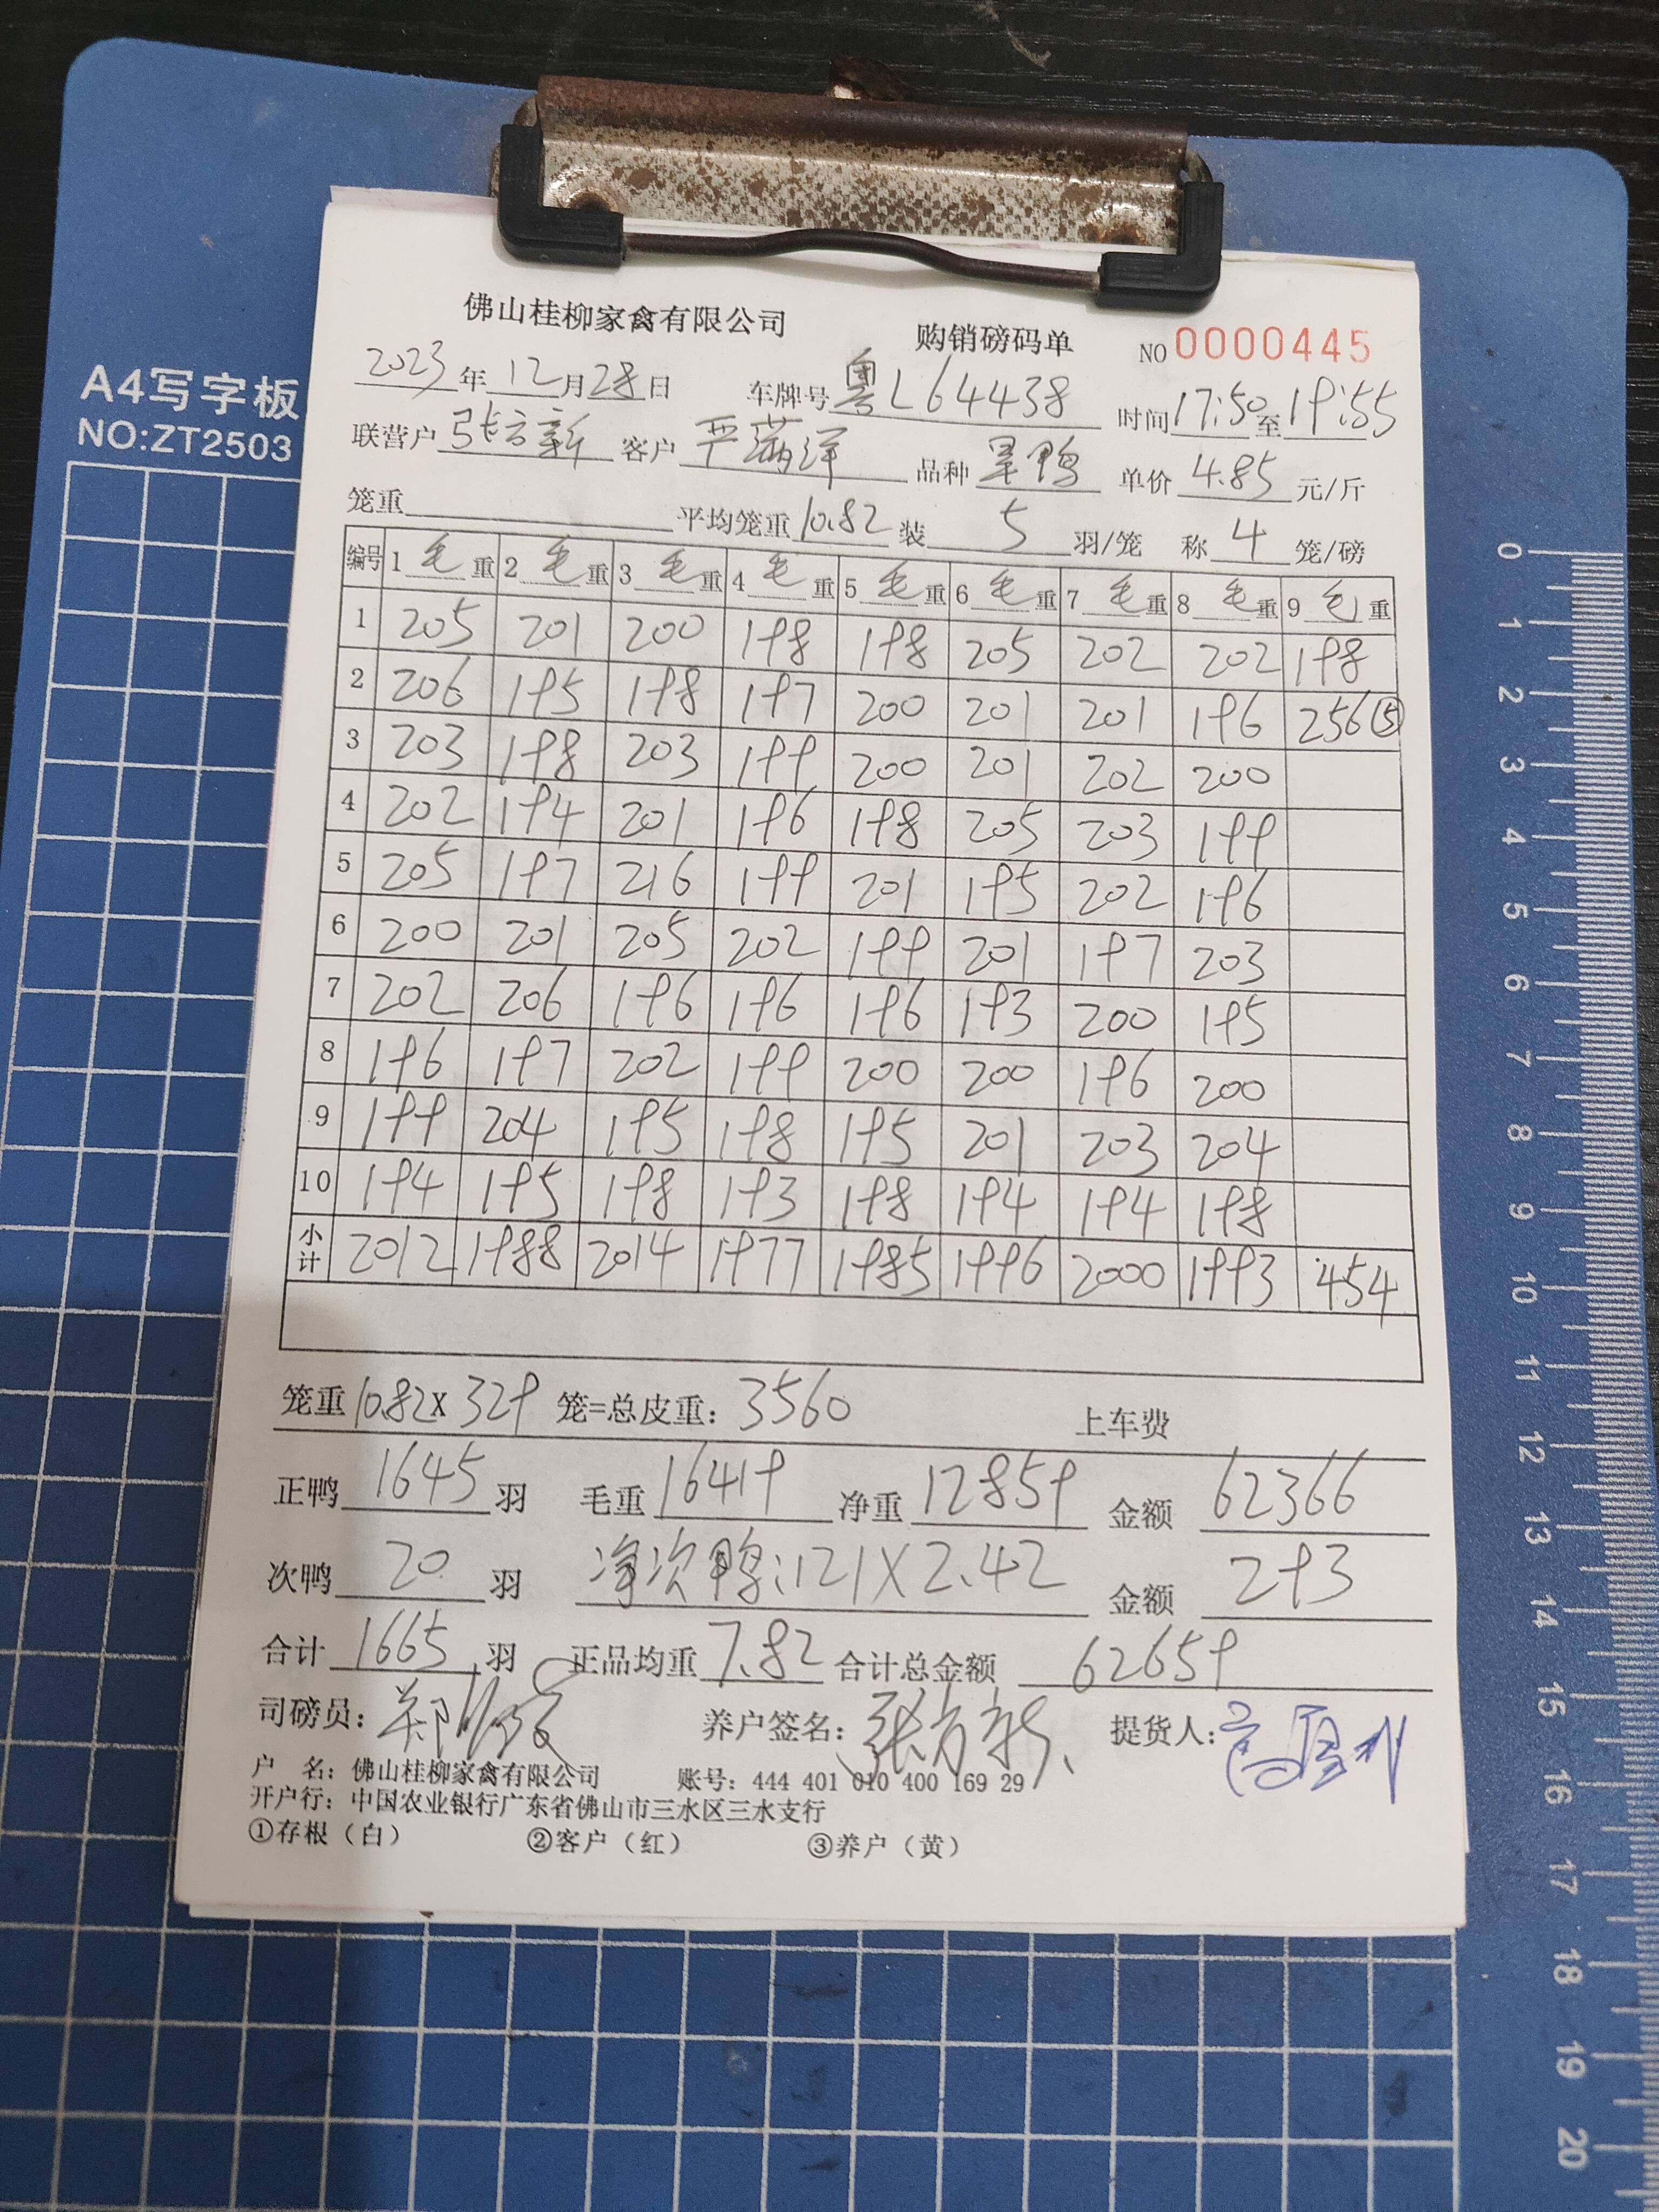 佛山桂柳家禽有限公司 购销磅码单 NO 0000445
2023年12月28日 车牌号 粤L64438 时间17:50至19:55
联营户 张云新 客户 严满洋 品种 旱鸭 单价 4.85 元/斤
笼重 平均笼重10.82 装 5 羽/笼 称 4 笼/磅
编号 1 毛 重 2 毛 重 3 毛 重 4 毛 重 5 毛 重 6 毛 重 7 毛 重 8 毛 重 9 毛 重
1 205 201 200 198 198 205 202 202 198
2 206 195 198 197 200 201 201 196 256⑤
3 203 198 203 199 200 201 202 200
4 202 194 201 196 198 205 203 199
5 205 197 216 199 201 195 202 196
6 200 201 205 202 199 201 197 203
7 202 206 196 196 196 193 200 195
8 196 197 202 199 200 200 196 200
9 199 204 195 198 195 201 203 204
10 194 195 198 193 198 194 194 198
小计 2012 1988 2014 1977 1985 1996 2000 1993 454
笼重 10.82 X 329 笼=总皮重: 3560 上车费
正鸭 1645 羽 毛重 16419 净重 12859 金额 62366
次鸭 20 羽 净次鸭:121X2.42 金额 293
合计 1665 羽 正品均重 7.82 合计总金额 62659
司磅员: 养户签名: 提货人:
户 名: 佛山桂柳家禽有限公司 账号: 444 401 010 400 169 29
开户行: 中国农业银行广东省佛山市三水区三水支行
①存根（白） ②客户（红） ③养户（黄）
A4写字板
NO:ZT2503
0 1 2 3 4 5 6 7 8 9 10 11 12 13 14 15 16 17 18 19 20